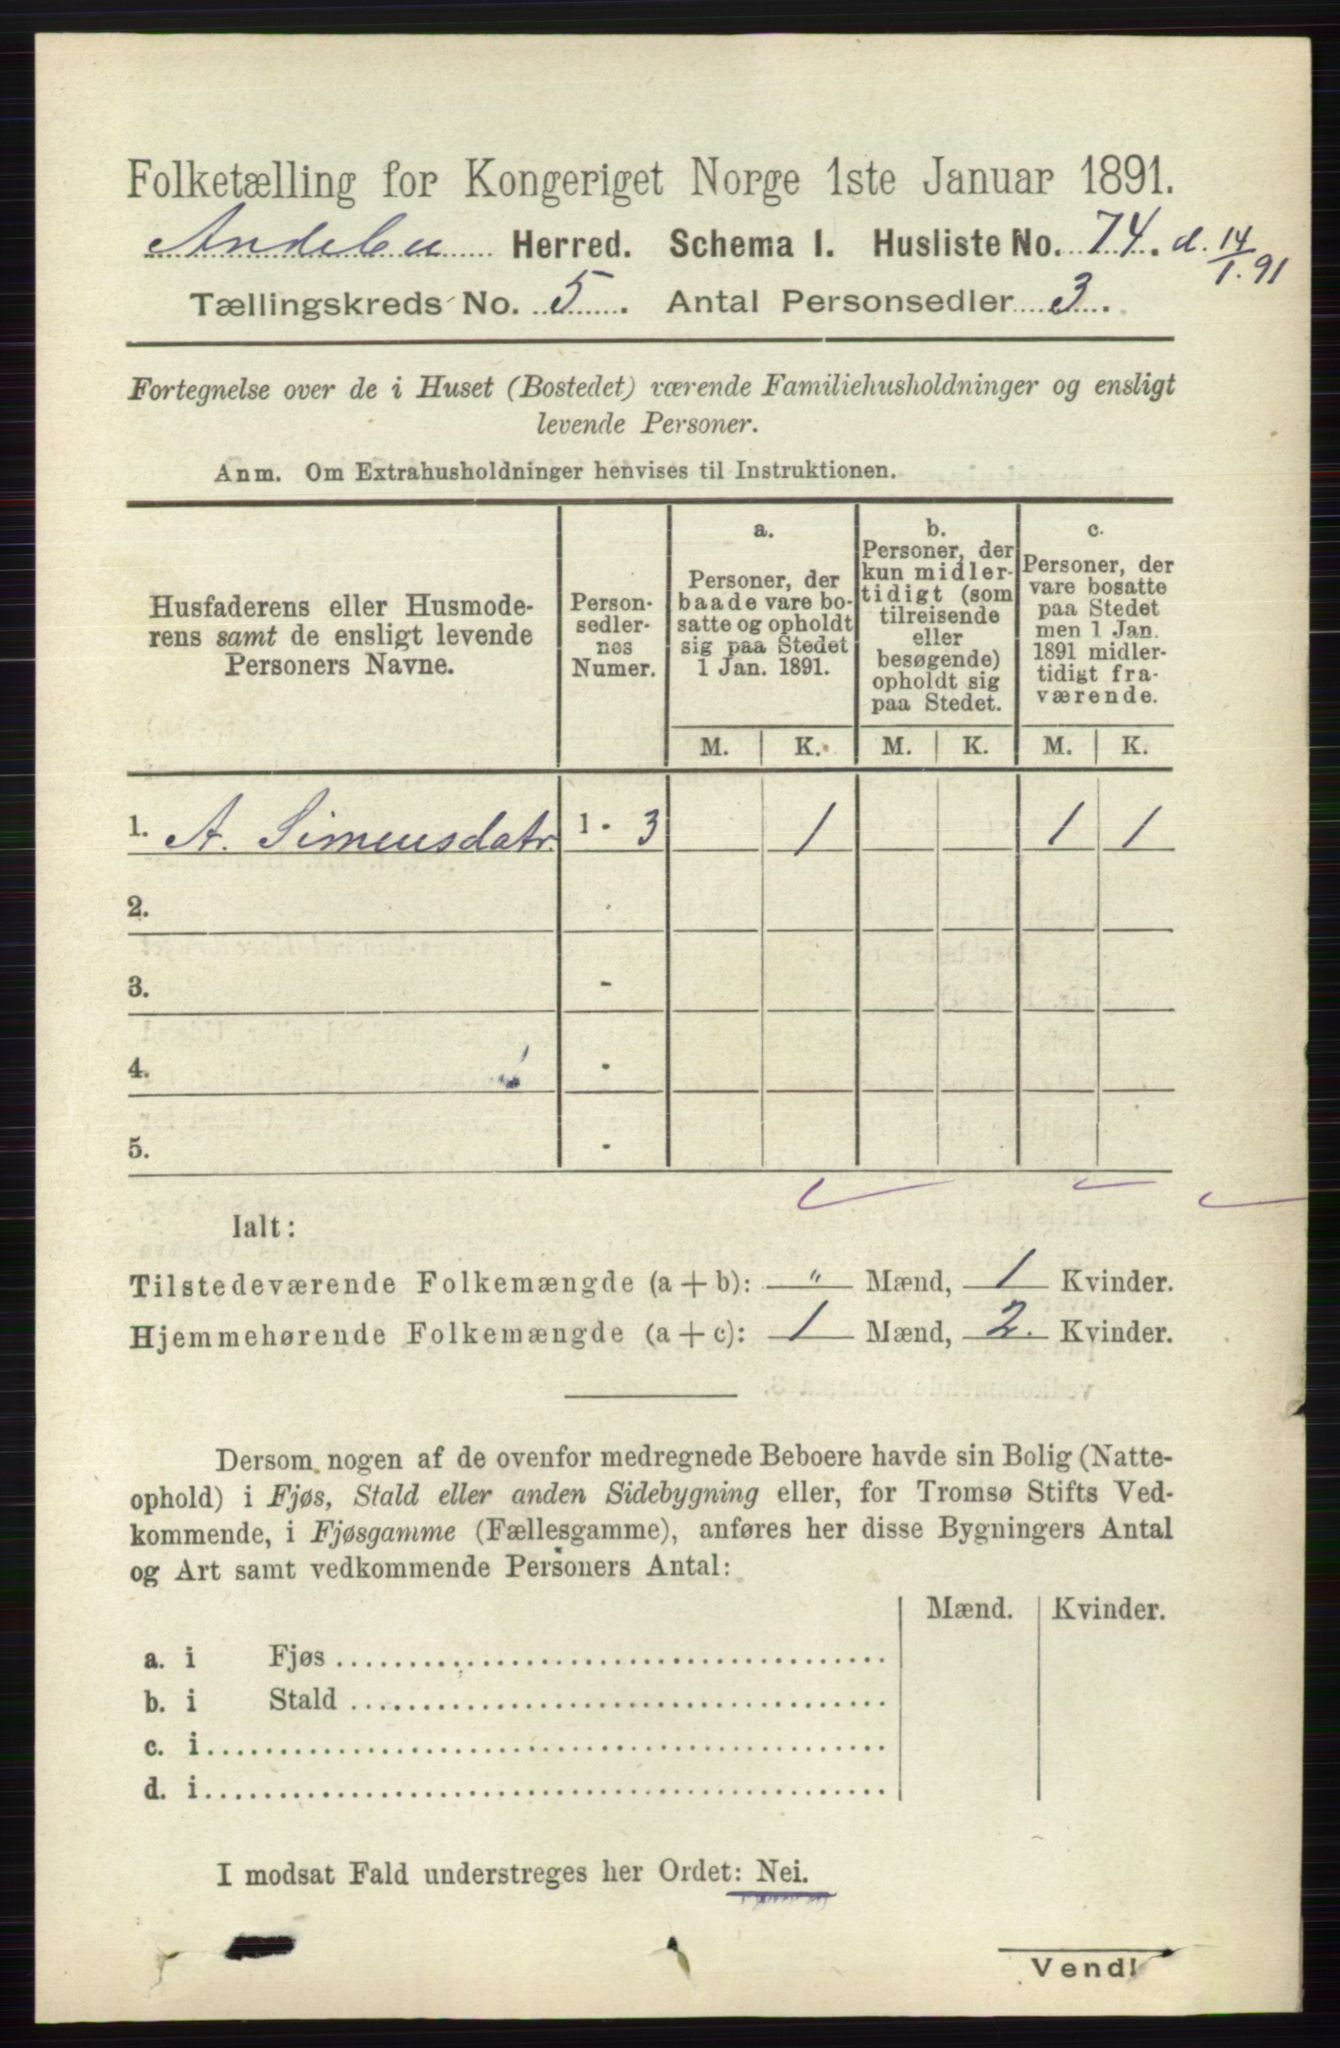 Folketælling for Kongeriget Norge 1ste Januar 1891.
Andebu Herred. Schema 1. Husliste No. 74. d. 14/1.91
Tællingskreds No. 5. Antal Personsedler 3.
Fortegnelse over de i Huset (Bostedet) værende Familiehusholdninger og ensligt
levende Personer.
Anm. Om Extrahusholdninger henvises til Instruktionen.
Husfaderens eller Husmode-
rens samt de ensligt levende
Personers Navne.
Person-
sedler-
nes
Numer.
a.
Personer, der
baade vare bo-
satte og opholdt
sig paa Stedet
1 Jan. 1891.
b.
Personer, der
kun midler-
tidigt (som
tilreisende
eller
besøgende)
opholdt sig
paa Stedet.
c.
Personer, der
vare bosatte
paa Stedet
men 1 Jan.
1891 midler-
tidigt fra-
værende.
M. K. M. K. M. K.
1. A. Simensdatr. 1 - 3 1 1 1
2.
3. -
4. -
5. -
Ialt:
Tilstedeværende Folkemængde (a + b): " Mænd, 1 Kvinder.
Hjemmehørende Folkemængde (a + c): 1 Mænd, 2. Kvinder.
Dersom nogen af de ovenfor medregnede Beboere havde sin Bolig (Natte-
ophold) i Fjøs, Stald eller anden Sidebygning eller, for Tromsø Stifts Ved-
kommende, i Fjøsgamme (Fællesgamme), anføres her disse Bygningers Antal
og Art samt vedkommende Personers Antal:
Mænd. Kvinder.
a. i Fjøs
b. i Stald
c. i
d. i
I modsat Fald understreges her Ordet: Nei.
Vend!